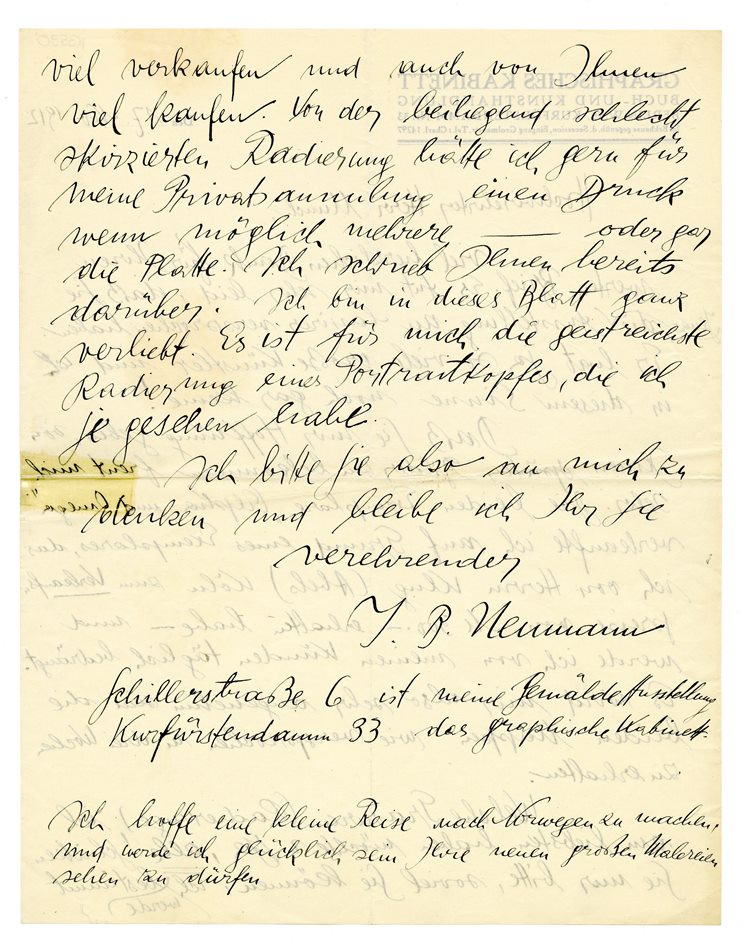 viel verkaufen und auch von Ihnen
viel kaufen. Von der beiliegend schlecht
skizzierten Radierung hätte ich gern für
meine Privatsammlung einen Druck
wenn möglich mehrere — oder gar
die Platte. Ich schrieb Ihnen bereits
darüber. Ich bin in dieses Blatt ganz
verliebt. Es ist für mich die geistreichste
Radierung eines Portraitkopfes, die ich
je gesehen habe.
Ich bitte Sie also an mich zu
denken und bleibe ich Ihr Sie
verehrender
J. B. Neumann
Schillerstraße 6 ist meine Gemälde Ausstellung
Kurfürstendamm 33 das graphische Kabinett.
Ich hoffe eine kleine Reise nach Norwegen zu machen,
und werde ich glücklich sein Ihre neuen großen Malereien
sehen zu dürfen